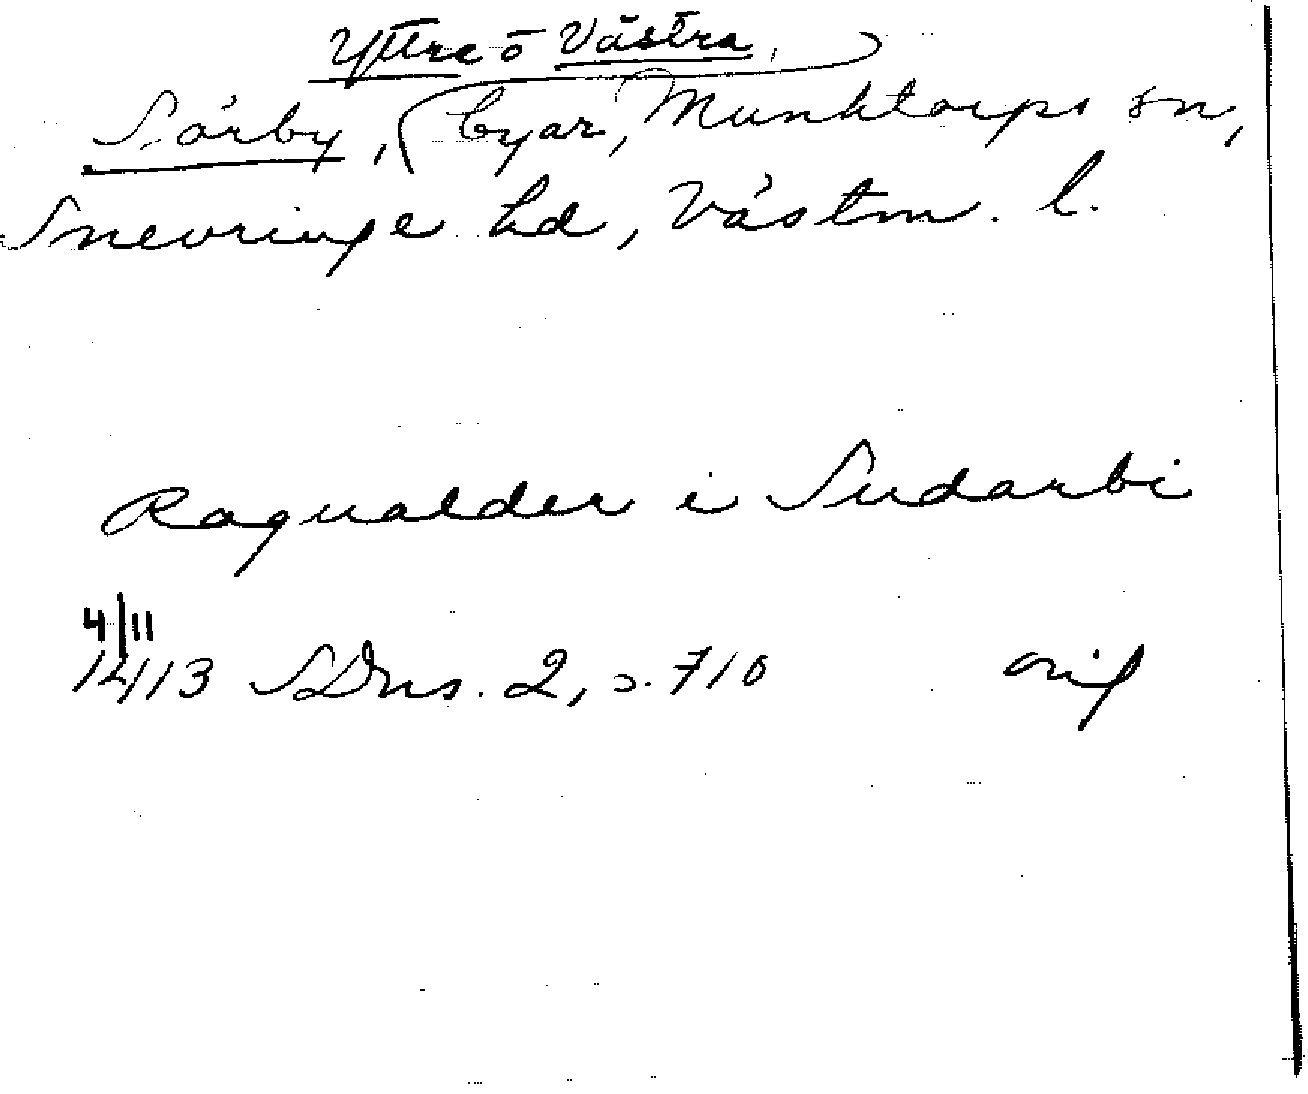 Yttre o Västra,
Sörby, (byar, Munktorps sn,
Snevringe hd, Västm. l.
Ragualder i Sudarbi
4/11
1413 SDns. 2, s. 710 orig